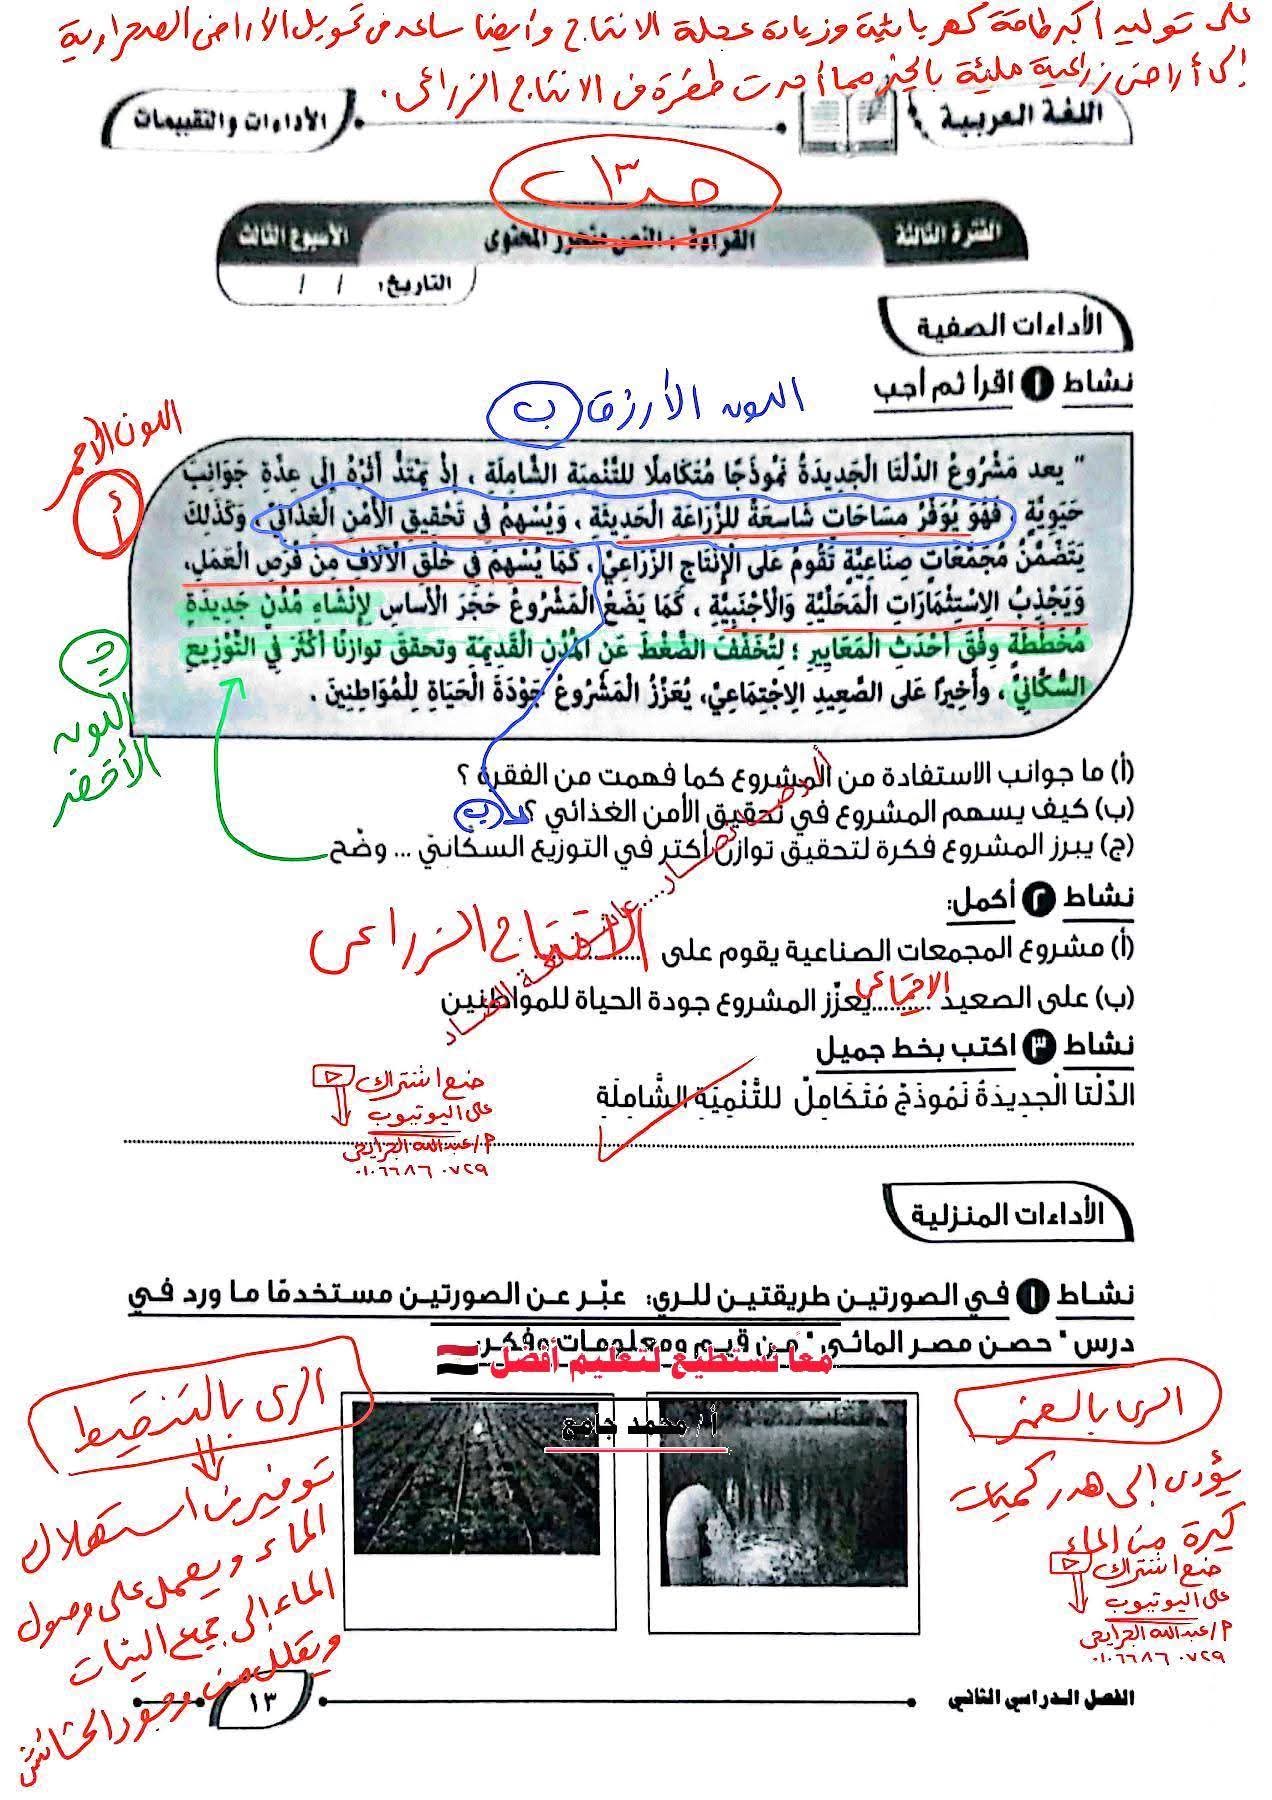 على توليد أكبر طاقة كهربائية وزيادة عجلة الانتاج وأيضا ساعد فى تحويل الأراضى الصحراوية
إلى أراضى زراعية مليئة بالخير مما أحدث طفرة فى الانتاج الزراعى .
اللغة العربية
الأداءات والتقييمات
صـ ١٣
الفترة الثالثة
القراءة : النص متحرر المحتوى
الأسبوع الثالث
التاريخ: / /
الأداءات الصفية
نشاط ١ اقرأ ثم أجب
اللون الأزرق ب
اللون الأحمر
أ
" يعد مَشْرُوعُ الدِّلْتَا الْجَدِيدَةُ نَمُوذَجًا مُتَكَامِلًا للتَّنْمِيَةِ الشَّامِلَةِ ، إِذْ يَمْتَدُّ أَثَرُهُ إِلَى عِدَّةِ جَوَانِبَ
حَيَوِيَّةٍ ، فَهُوَ يُوَفِّرُ مِسَاحَاتٍ شَاسِعَةً لِلزِّرَاعَةِ الْحَدِيثَةِ ، وَيُسْهِمُ فِي تَحْقِيقِ الْأَمْنِ الْغِذَائِيِّ ، وَكَذَلِكَ
يَتَضَمَّنُ مُجَمَّعَاتٍ صِنَاعِيَّةً تَقُومُ عَلَى الْإِنْتَاجِ الزِّرَاعِيِّ ، كَمَا يُسْهِمُ فِي خَلْقِ الْآلَافِ مِنْ فُرَصِ الْعَمَلِ،
وَيَجْذِبُ الِاسْتِثْمَارَاتِ الْمَحَلِّيَّةَ وَالْأَجْنَبِيَّةَ ، كَمَا يَضَعُ الْمَشْرُوعُ حَجَرَ الْأَسَاسِ لِإِنْشَاءِ مُدُنٍ جَدِيدَةٍ
مُخَطَّطَةٍ وِفْقَ أَحْدَثِ الْمَعَايِيرِ ؛ لِتُخَفِّفَ الضَّغْطَ عَنِ الْمُدُنِ الْقَدِيمَةِ وتحقق توازنًا أَكْثَرَ فِي التَّوْزِيعِ
السُّكَّانِيِّ ، وَأَخِيرًا عَلَى الصَّعِيدِ الِاجْتِمَاعِيِّ، يُعَزِّزُ الْمَشْرُوعُ جَوْدَةَ الْحَيَاةِ لِلْمُوَاطِنِينَ .
اللون
الأخضر
(أ) ما جوانب الاستفادة من المشروع كما فهمت من الفقرة ؟
(ب) كيف يسهم المشروع في تحقيق الأمن الغذائي ؟ ب
(ج) يبرز المشروع فكرة لتحقيق توازن أكتر في التوزيع السكاني ... وضّح
نشاط ٢ أكمل:
(أ) مشروع المجمعات الصناعية يقوم على .............. الانتاج الزراعى
(ب) على الصعيد ......... الاجتماعى يعزّز المشروع جودة الحياة للمواطنين
نشاط ٣ اكتب بخط جميل
الدِّلْتَا الْجَدِيدَةُ نَمُوذَجٌ مُتَكَامِلٌ للتَّنْمِيَةِ الشَّامِلَةِ
ضع اشتراك
على اليوتيوب
م/عبدالله الجرايحى
٠١٠٦٦٨٦٠٧٢٩
الأداءات المنزلية
نشاط ١ في الصورتين طريقتين للري: عبّر عن الصورتين مستخدمًا ما ورد في
درس " حصن مصر المائي " من قيم ومعلومات وفكر.
معًا نستطيع لتعليم أفضل
أ / محمد جامع
الرى بالغمر
يؤدى إلى هدر كميات
كبيرة من الماء
ضع اشتراك
على اليوتيوب
م/عبدالله الجرايحى
٠١٠٦٦٨٦٠٧٢٩
الرى بالتنقيط
توفير فى استهلاك
الماء ويعمل على وصول
الماء إلى جميع النباتات
ويقلل من وجود الحشائش
الفصل الدراسي الثاني
١٣